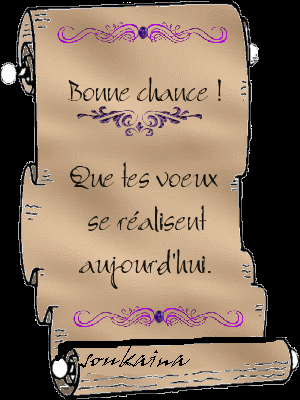 Bonne chance !
Que tes voeux
se réalisent
aujourd'hui.
soukaina